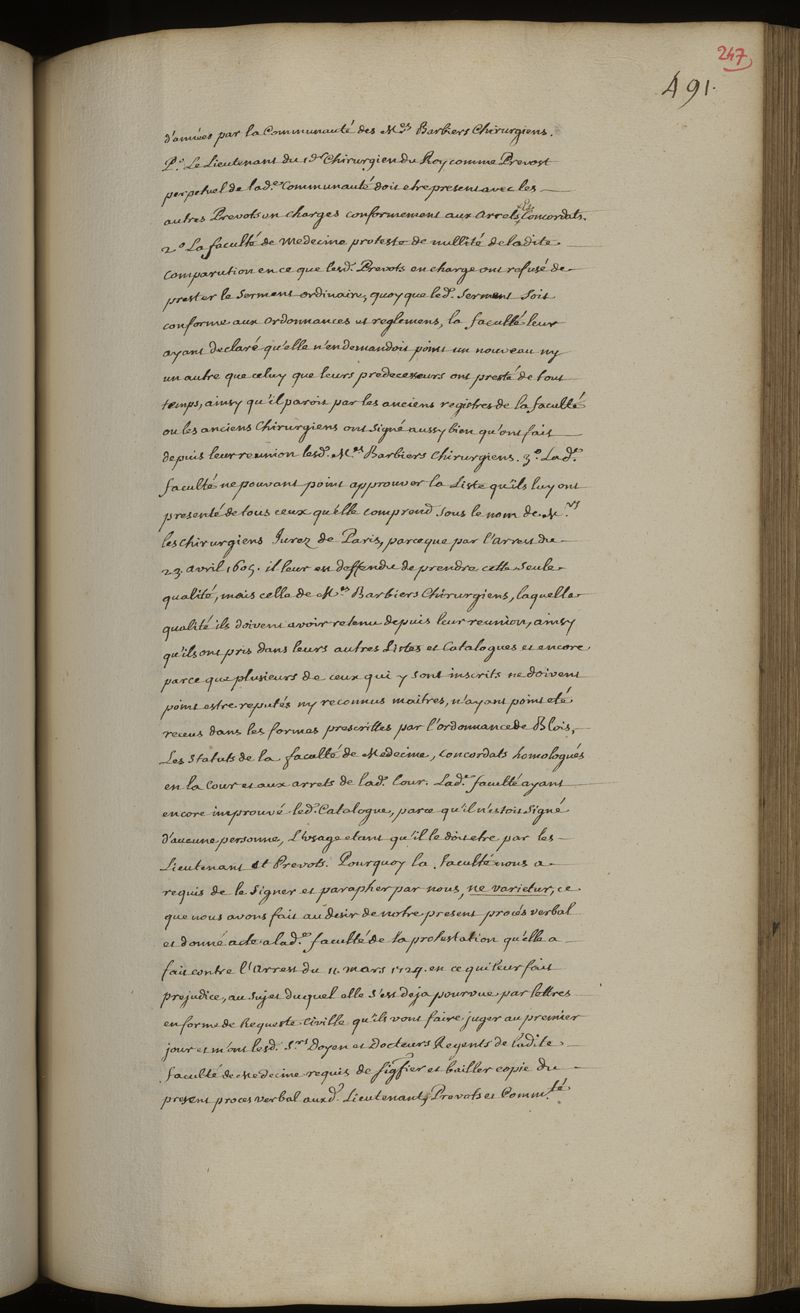 247
491.
d'années par la Communauté des M.rs Barbiers Chirurgiens.
P.o Le Lieutenant du 1.er Chirurgien du Roy comme Prevost
perpetuel de lad.e Communauté doit etre present avec les
autres Prevots en charges conformement aux Arrets, Concordats.
2.o La faculté de Medecine proteste de nullité de ladite
Comparution en ce que lesd. Prevots en charge ont refusé de
prester le Serment ordinaire, quoy que led. Serment Soit
conforme aux ordonnances et reglemens, la faculté leur
ayant declaré qu'elle n'en demandoit point un nouveau ny
un autre que celuy que leurs predecesseurs ont presté de tout
temps, ainsy qu'il paroit par les anciens registres de la faculté
ou les anciens Chirurgiens ont Signé aussy bien qu'ont fait
depuis leur reunion lesd. M.rs Barbiers Chirurgiens. 3.o Lad.e
faculté ne pouvant point approuver la Liste qu'ils luy ont
presenté de tous ceux qu'elle comprend Sous le nom de M.rs
les Chirurgiens Jurez de Paris, parce que par l'arrest du
23. avril 1605. il leur en deffendu de prendre cette Seule
qualité, mais celle de M.es Barbiers Chirurgiens, laquelle
qualité ils doivent avoir retenu depuis leur reunion, ainsy
qu'ils ont pris dans leurs autres Listes et Catalogues et encore
parce que plusieurs de ceux qui y sont inscrits ne doivent
point estre reputés ny reconnus maitres, n'ayant point eté
receus dans les formes prescrittes par l'ordonnance de Blois,
Les Statuts de la faculté de Medecine, Concordats homologués
en la Cour et aux arrets de lad.e Cour. Lad.e faculté ayant
encore improuvé led. Catalogue, parce qu'il n'estoit Signé
d'aucune personne, L'Usage etant qu'il le doit etre par les
Lieutenant et Prevots. Pourquoy la faculté nous a
requis de le Signer et parapher par nous, ne varietur, ce
que nous avons fait au desir de notre present procés verbal
et donné acte a lad.e faculté de la protestation qu'elle a
fait contre l'Arrest du 11. mars 1724. en ce qui leur fait
prejudice, au Sujet duquel elle S'est deja pourvue par lettres
en forme de Requeste Civille qu'ils vont faire juger au premier
jour et m'ont lesd. S.rs Doyen et Docteurs Regents de ladite
faculté de Medecine requis de signifier et bailler copie du
present proces verbal auxd. Lieutenant, Prevots et Comm.té